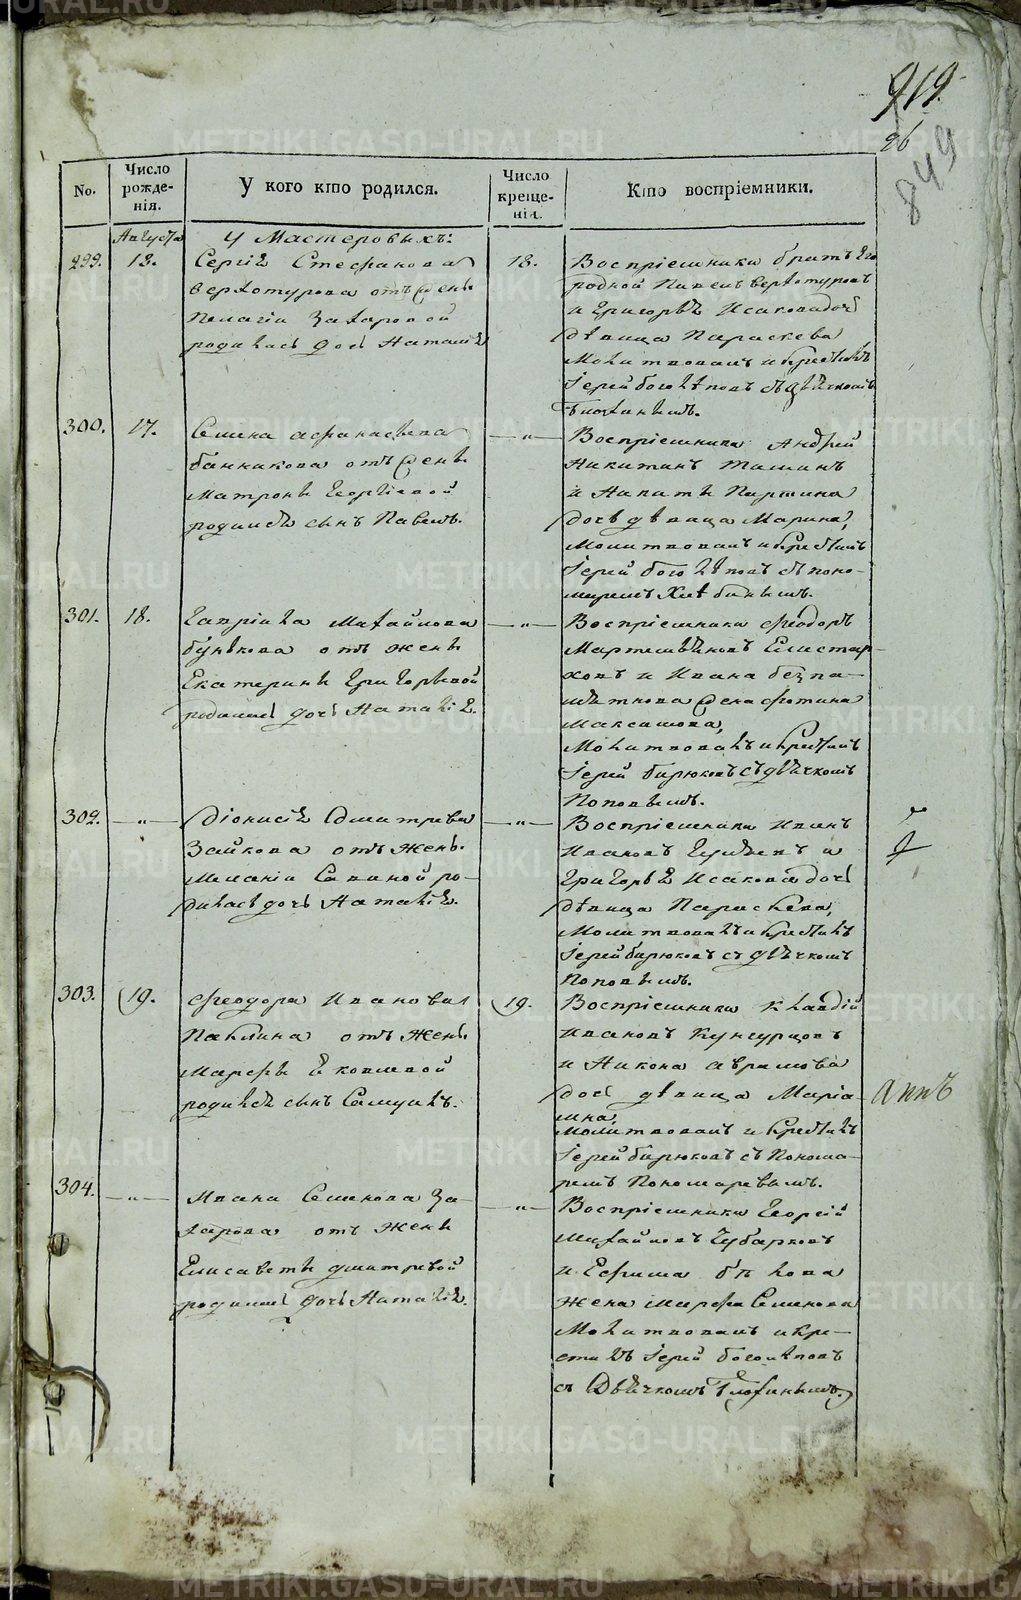 919.
26
849
No.
Число рожде-нія.
У кого кто родился.
Число креще-нія.
Кто воспріемники.
Августа
У Мастеровыхъ:
299.
18.
Сергія Стефанова
Верхотурова отъ жены
Пелагіи Захаровой
родилась дочь Наталія
18.
Воспріемники братъ его
родной Павелъ Верхотуровъ
и Григорья Исакова дочь
дѣвица Параскева
Молитвовалъ и крестилъ
Іерей Боголѣповъ съ дьячкомъ
300.
17.
Семена Афанасьева
Банникова отъ жены
Матроны Георгіевой
родился сынъ Павелъ.
— „ —
Воспріемники Андрей
Никитинъ
и Ипата Паршина
дочь дѣвица Марина,
Молитвовалъ и крестилъ
Іерей Боголѣповъ съ поно-
маремъ
301.
18.
Гавріила Михайлова
Бунькова отъ жены
Екатерины Григорьевой
родилась дочь Наталія.
— „ —
Воспріемники Феодоръ
Елистар-
ховъ и Ивана Безпа-
мятнова жена Фотина
Максимова,
Молитвовалъ и крестилъ
Іерей Бирюковъ съ дьячкомъ
Поповымъ.
302.
— „ —
Діонисія Дмитрева
Зайкова отъ жены
Меланіи Савиной ро-
дилась дочь Наталія.
— „ —
Воспріемники Иванъ
Ивановъ и
Григорья Исакова дочь
дѣвица Параскева,
Молитвовалъ и крестилъ
Іерей Бирюковъ съ дьячкомъ
Поповымъ.
303.
19.
Феодора Иванова
Паклина отъ жены
Марфы Яковлевой
родился сынъ Самуилъ.
19.
Воспріемники Клавдій
Ивановъ Кунгурцовъ
и Никона Аврамова
дочь дѣвица Маріа-
мна,
Молитвовалъ и крестилъ
Іерей Бирюковъ съ Понома-
ремъ Пономаревымъ.
304.
— „ —
Ивана Семенова За-
харова отъ жены
Елисаветы Дмитревой
родилась дочь Наталія.
— „ —
Воспріемники Георгій
Михайловъ Чубарковъ
и Ефима
жена Марфа Семенова
Молитвовалъ и кре-
стилъ Іерей Боголѣповъ
съ Дьячкомъ
METRIKI.GASO-URAL.RU